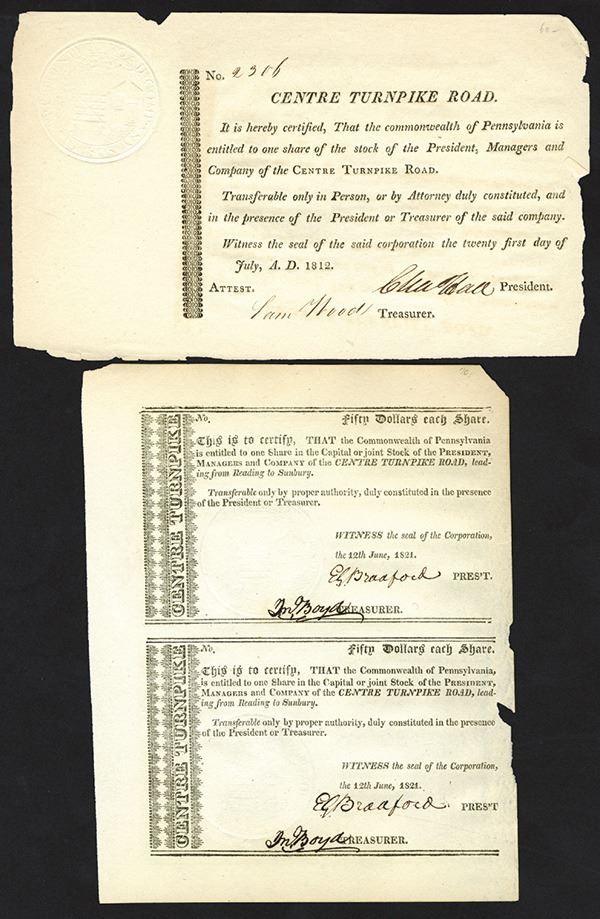 No. 2306
CENTRE TURNPIKE ROAD.
It is hereby certified, That the commonwealth of Pennsylvania is
entitled to one share of the stock of the President, Managers and
Company of the CENTRE TURNPIKE ROAD.
Transferable only in Person, or by Attorney duly constituted, and
in the presence of the President or Treasurer of the said company.
Witness the seal of the said corporation the twenty first day of
July, A. D. 1812.
ATTEST. President.
Sam Wood Treasurer.
CENTRE TURNPIKE
No. Fifty Dollars each Share.
This is to certify, THAT the Commonwealth of Pennsylvania
is entitled to one Share in the Capital or joint Stock of the PRESIDENT,
MANAGERS and COMPANY of the CENTRE TURNPIKE ROAD, lead-
ing from Reading to Sunbury.
Transferable only by proper authority, duly constituted in the presence
of the President or Treasurer.
WITNESS the seal of the Corporation,
the 12th June, 1821.
EG Bradford PRES'T.
Jn. Boyd TREASURER.
CENTRE TURNPIKE
No. Fifty Dollars each Share.
This is to certify, THAT the Commonwealth of Pennsylvania,
is entitled to one Share in the Capital or joint Stock of the PRESIDENT,
MANAGERS and COMPANY of the CENTRE TURNPIKE ROAD, lead-
ing from Reading to Sunbury.
Transferable only by proper authority, duly constituted in the presence
of the President or Treasurer.
WITNESS the seal of the Corporation,
the 12th June, 1821.
EG Bradford PRES'T
Jn. Boyd TREASURER.